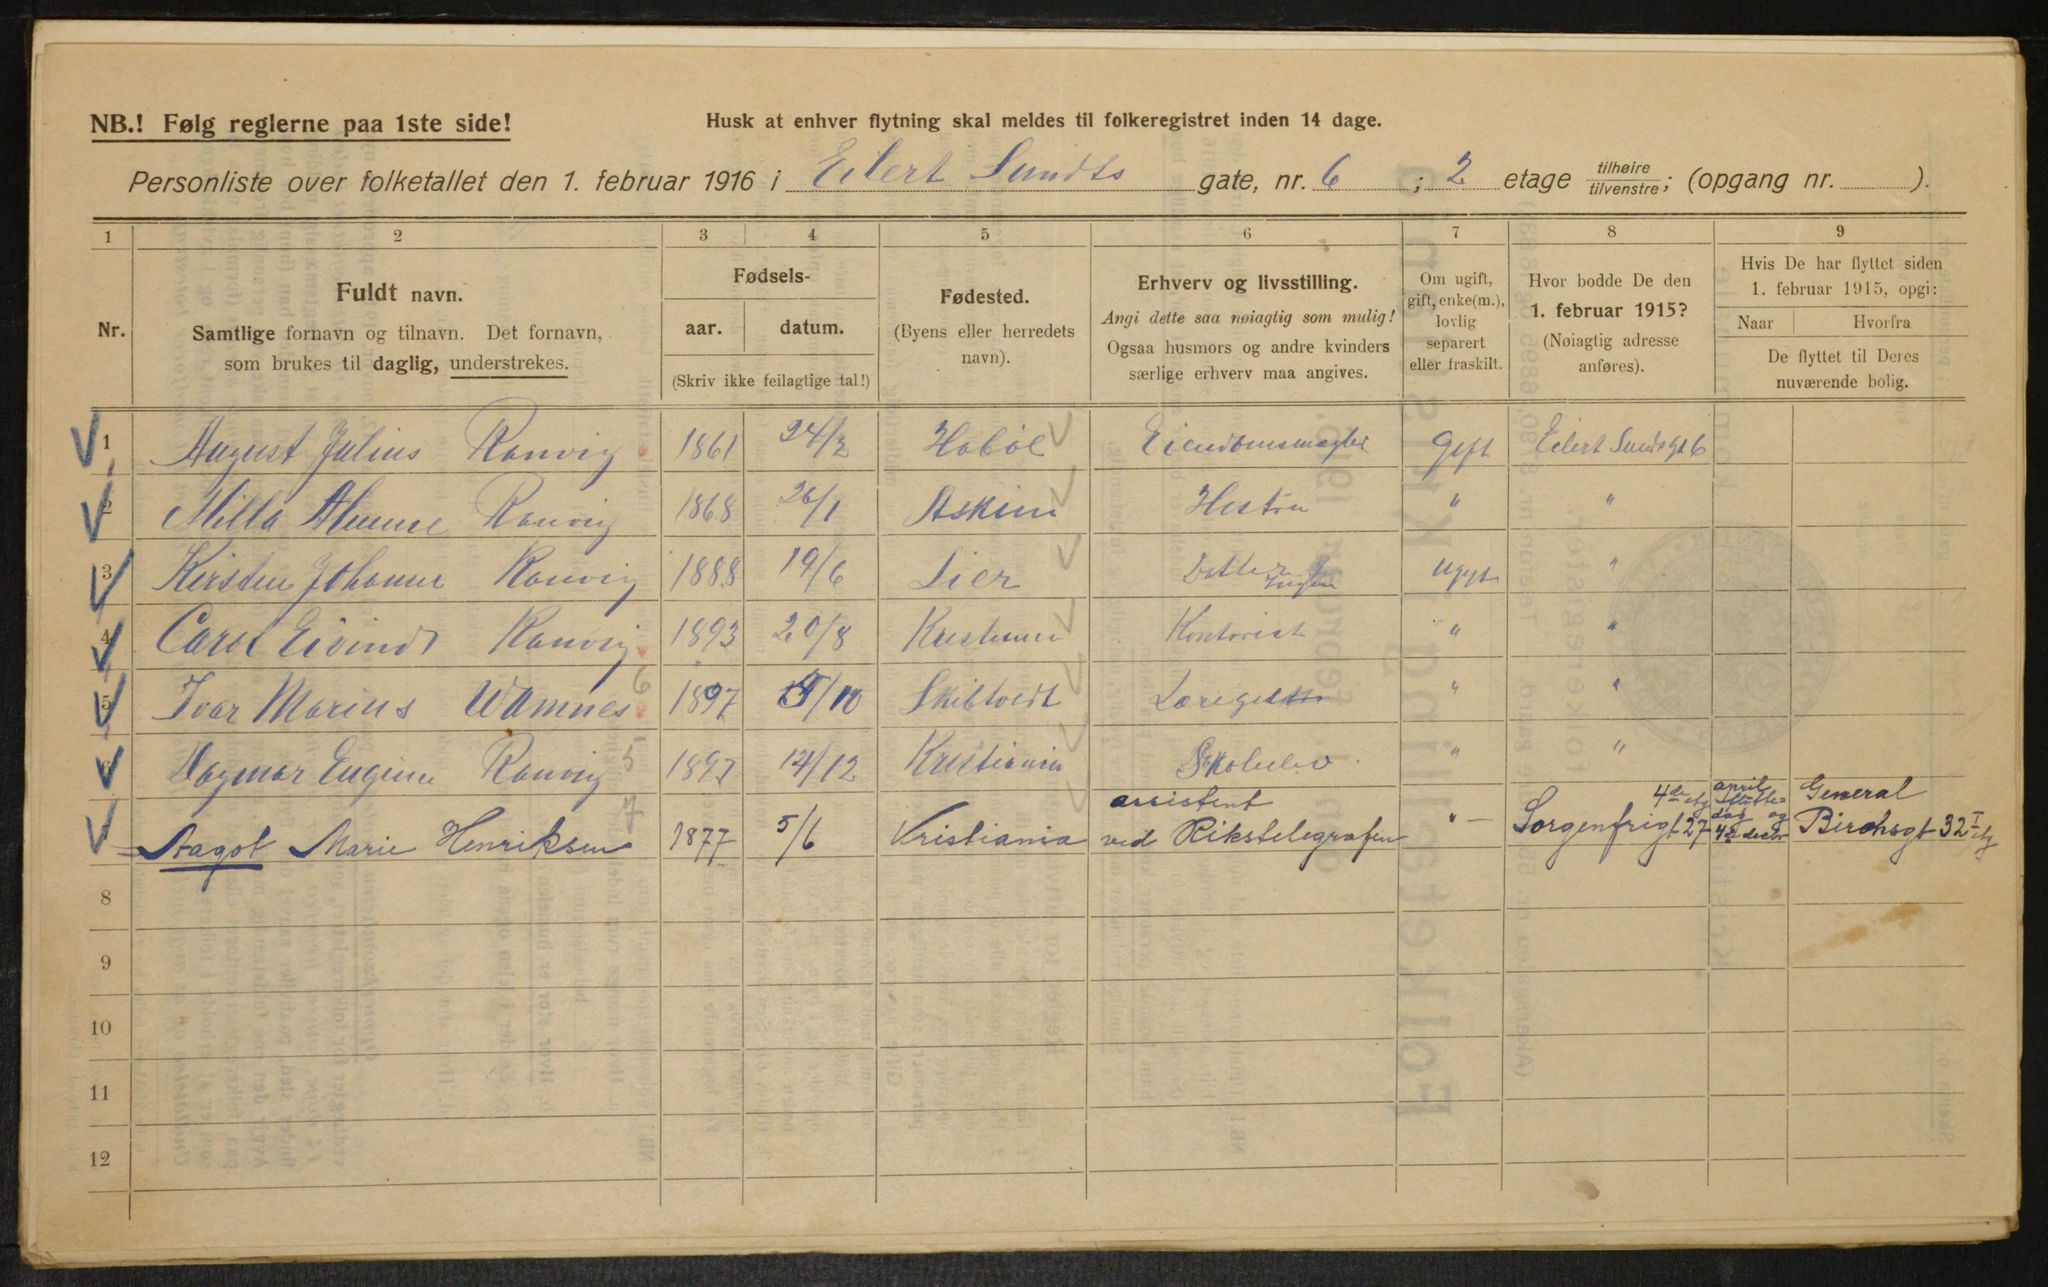 NB.! Følg reglerne paa 1ste side!
Husk at enhver flytning skal meldes til folkeregistret inden 14 dage.
Personliste over folketallet den 1. februar 1916 i Eilert Sundts gate, nr. 6 ; 2 etage tilhøire/tilvenstre; (opgang nr. ).
1 2 3 4 5 6 7 8 9
Nr.
Fuldt navn.
Samtlige fornavn og tilnavn. Det fornavn,
som brukes til daglig, understrekes.
Fødsels-
aar. datum.
(Skriv ikke feilagtige tal!)
Fødested.
(Byens eller herredets
navn).
Erhverv og livsstilling.
Angi dette saa nøiagtig som mulig!
Ogsaa husmors og andre kvinders
særlige erhverv maa angives.
Om ugift,
gift, enke(m.),
lovlig
separert
eller fraskilt.
Hvor bodde De den
1. februar 1915?
(Nøiagtig adresse
anføres).
Hvis De har flyttet siden
1. februar 1915, opgi:
Naar Hvorfra
De flyttet til Deres
nuværende bolig.
1 August Julius Ranvig 1861 24/2 Hobøl Eiendomsmægler Gift Eilert Sundsgt 6
2 Milla Ranvig 1868 26/1 Askim Hustru " "
3 Kirsten Johanne Ranvig 1888 19/6 Lier Datter Ingen Ugift "
4 Carl Eivind Ranvig 1893 20/8 Kontorist " "
5 Ivar Marius Wamnes 1897 /10 Skibtvedt " "
6 Dagmar Eugenie Ranvig 1897 14/12 Kristiania Skoleelev " "
Aagot Marie Henriksen 1877 5/6 Kristiania assistent
ved Rikstelegrafen "— Sorgenfrigt 27 4de etg april flytte-
dag og General
Birchsgt 32 I etg
8
9
10
11
12